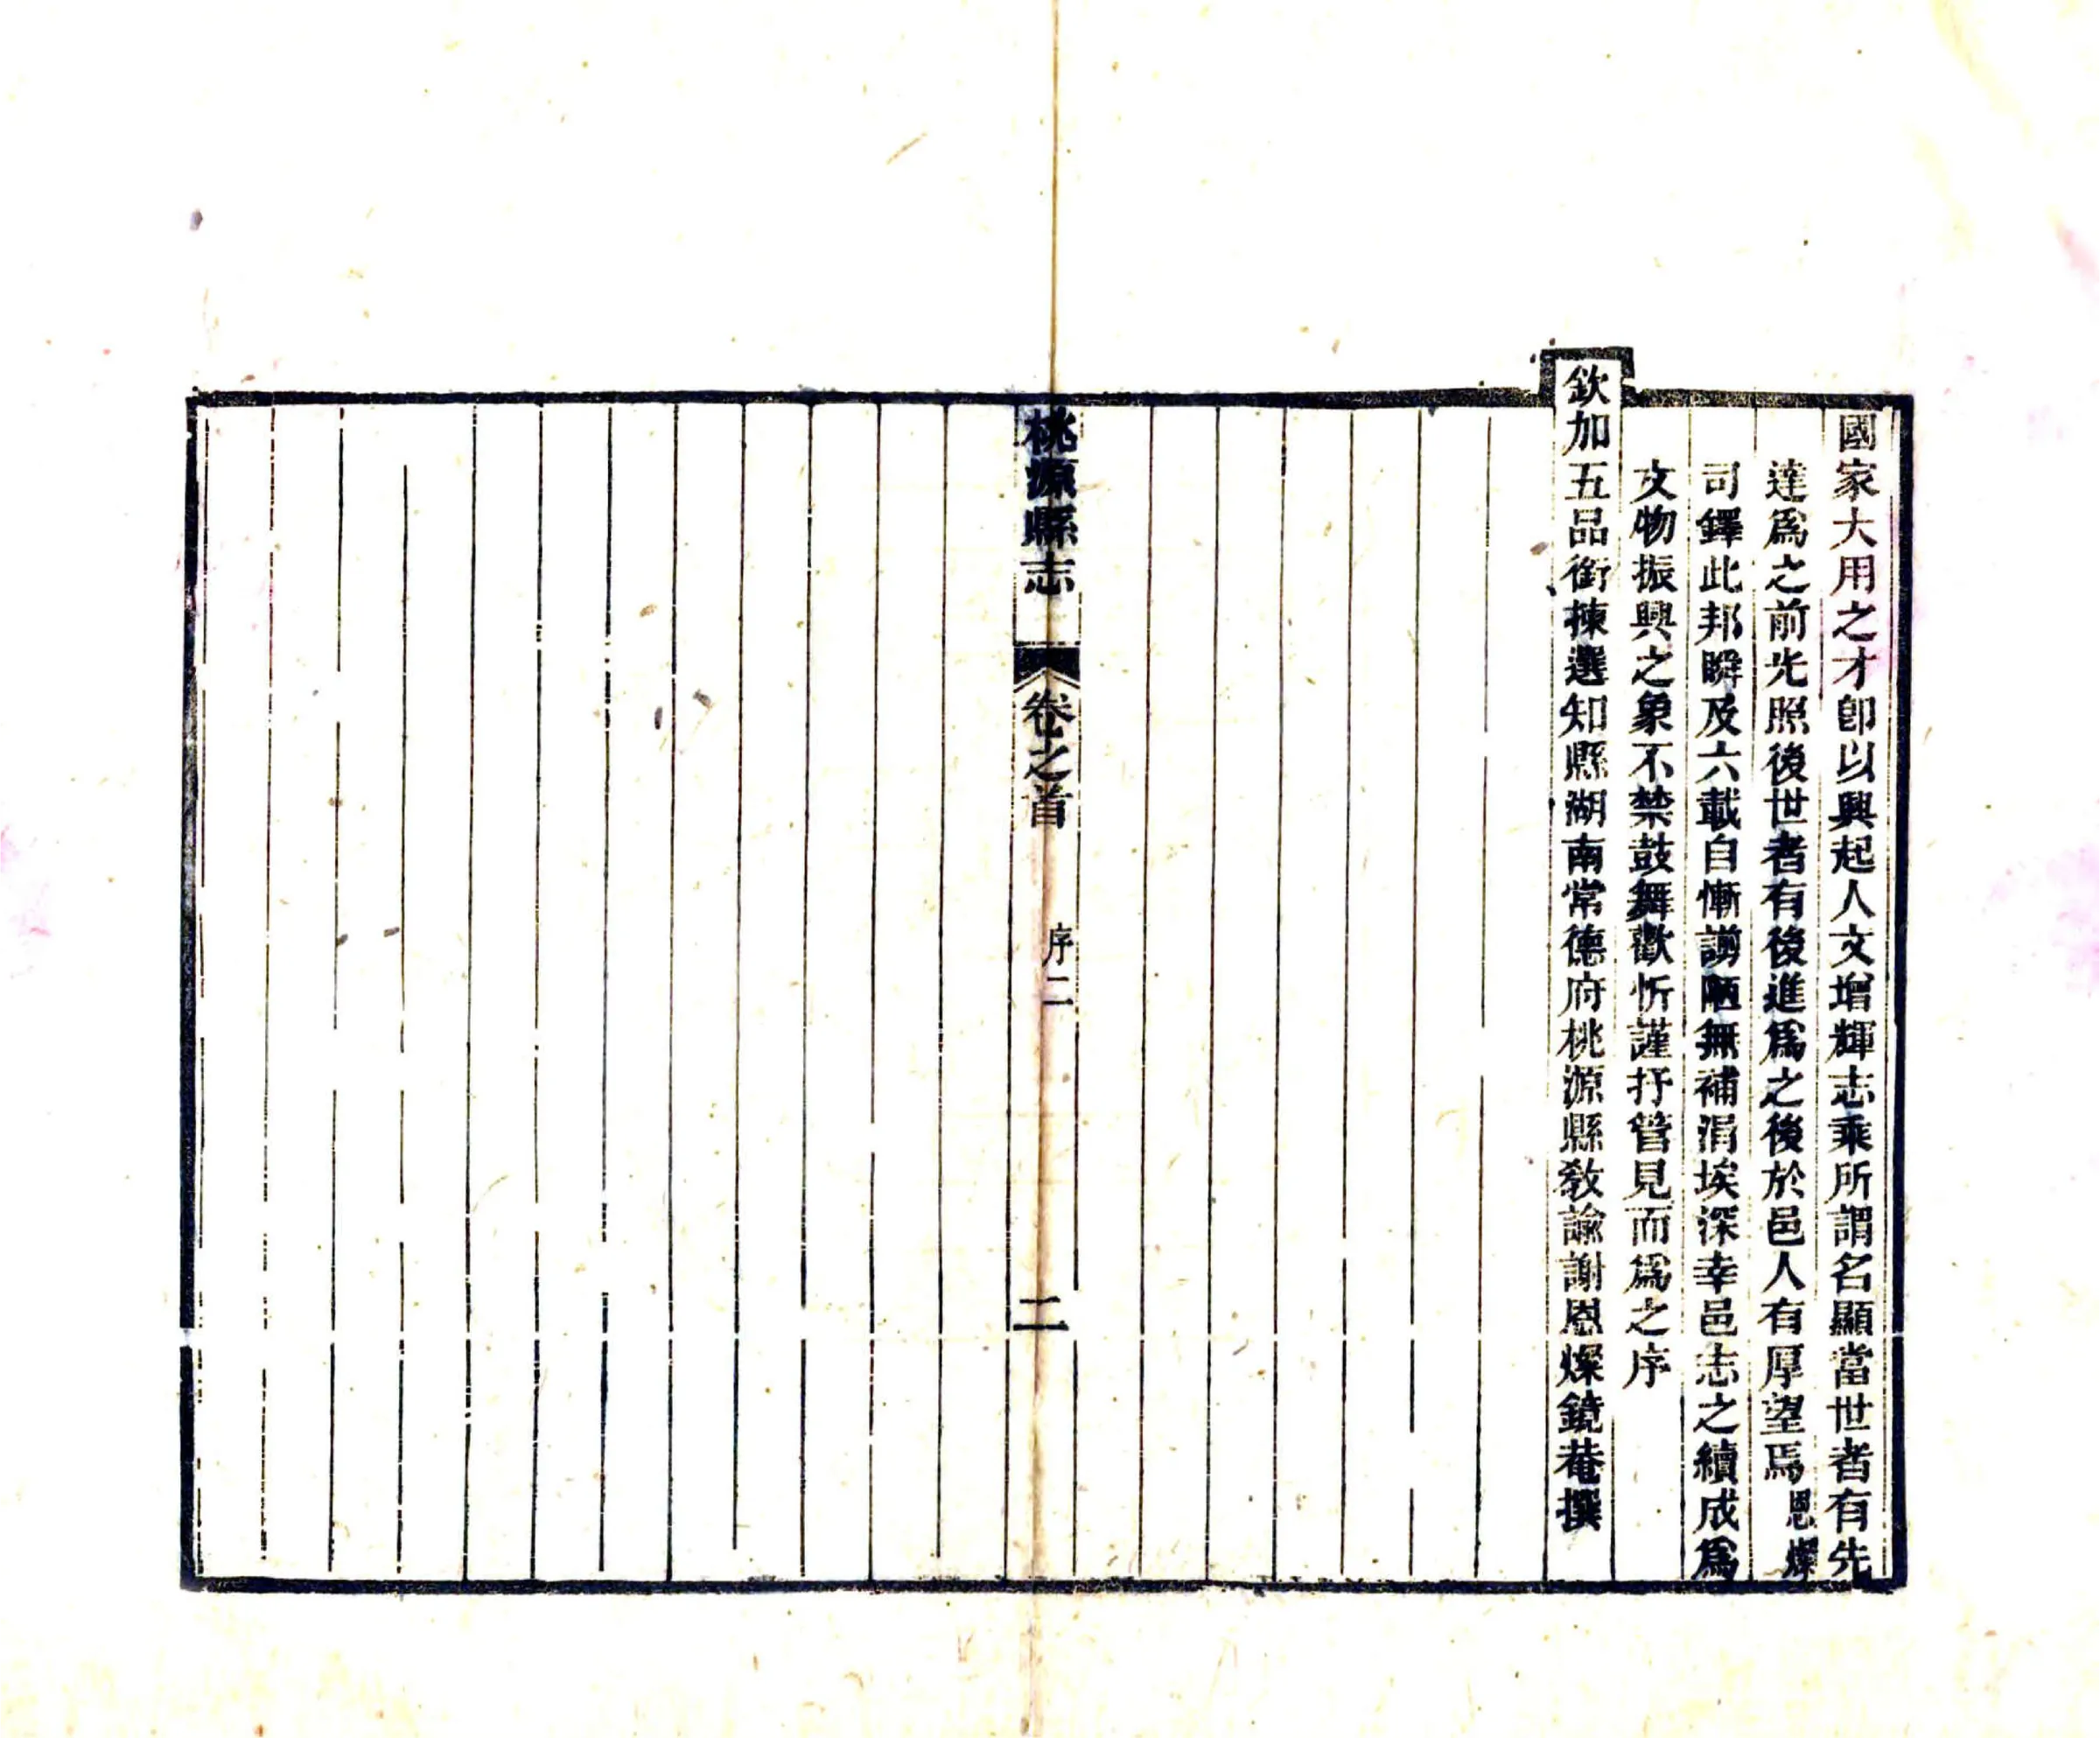 國家大用之才卽以興起人文增輝志乘所謂名顯當世者有先
達爲之前光照後世者有後進爲之後於邑人有厚望焉恩燦
司鐸此邦瞬及六載自慚譾陋無補涓埃深幸邑志之續成爲
文物振興之象不禁鼓舞歡忻謹抒管見而爲之序
欽加五品銜揀選知縣湖南常德府桃源縣敎諭謝恩燦鏡菴撰
桃源縣志 卷之首 序二 二